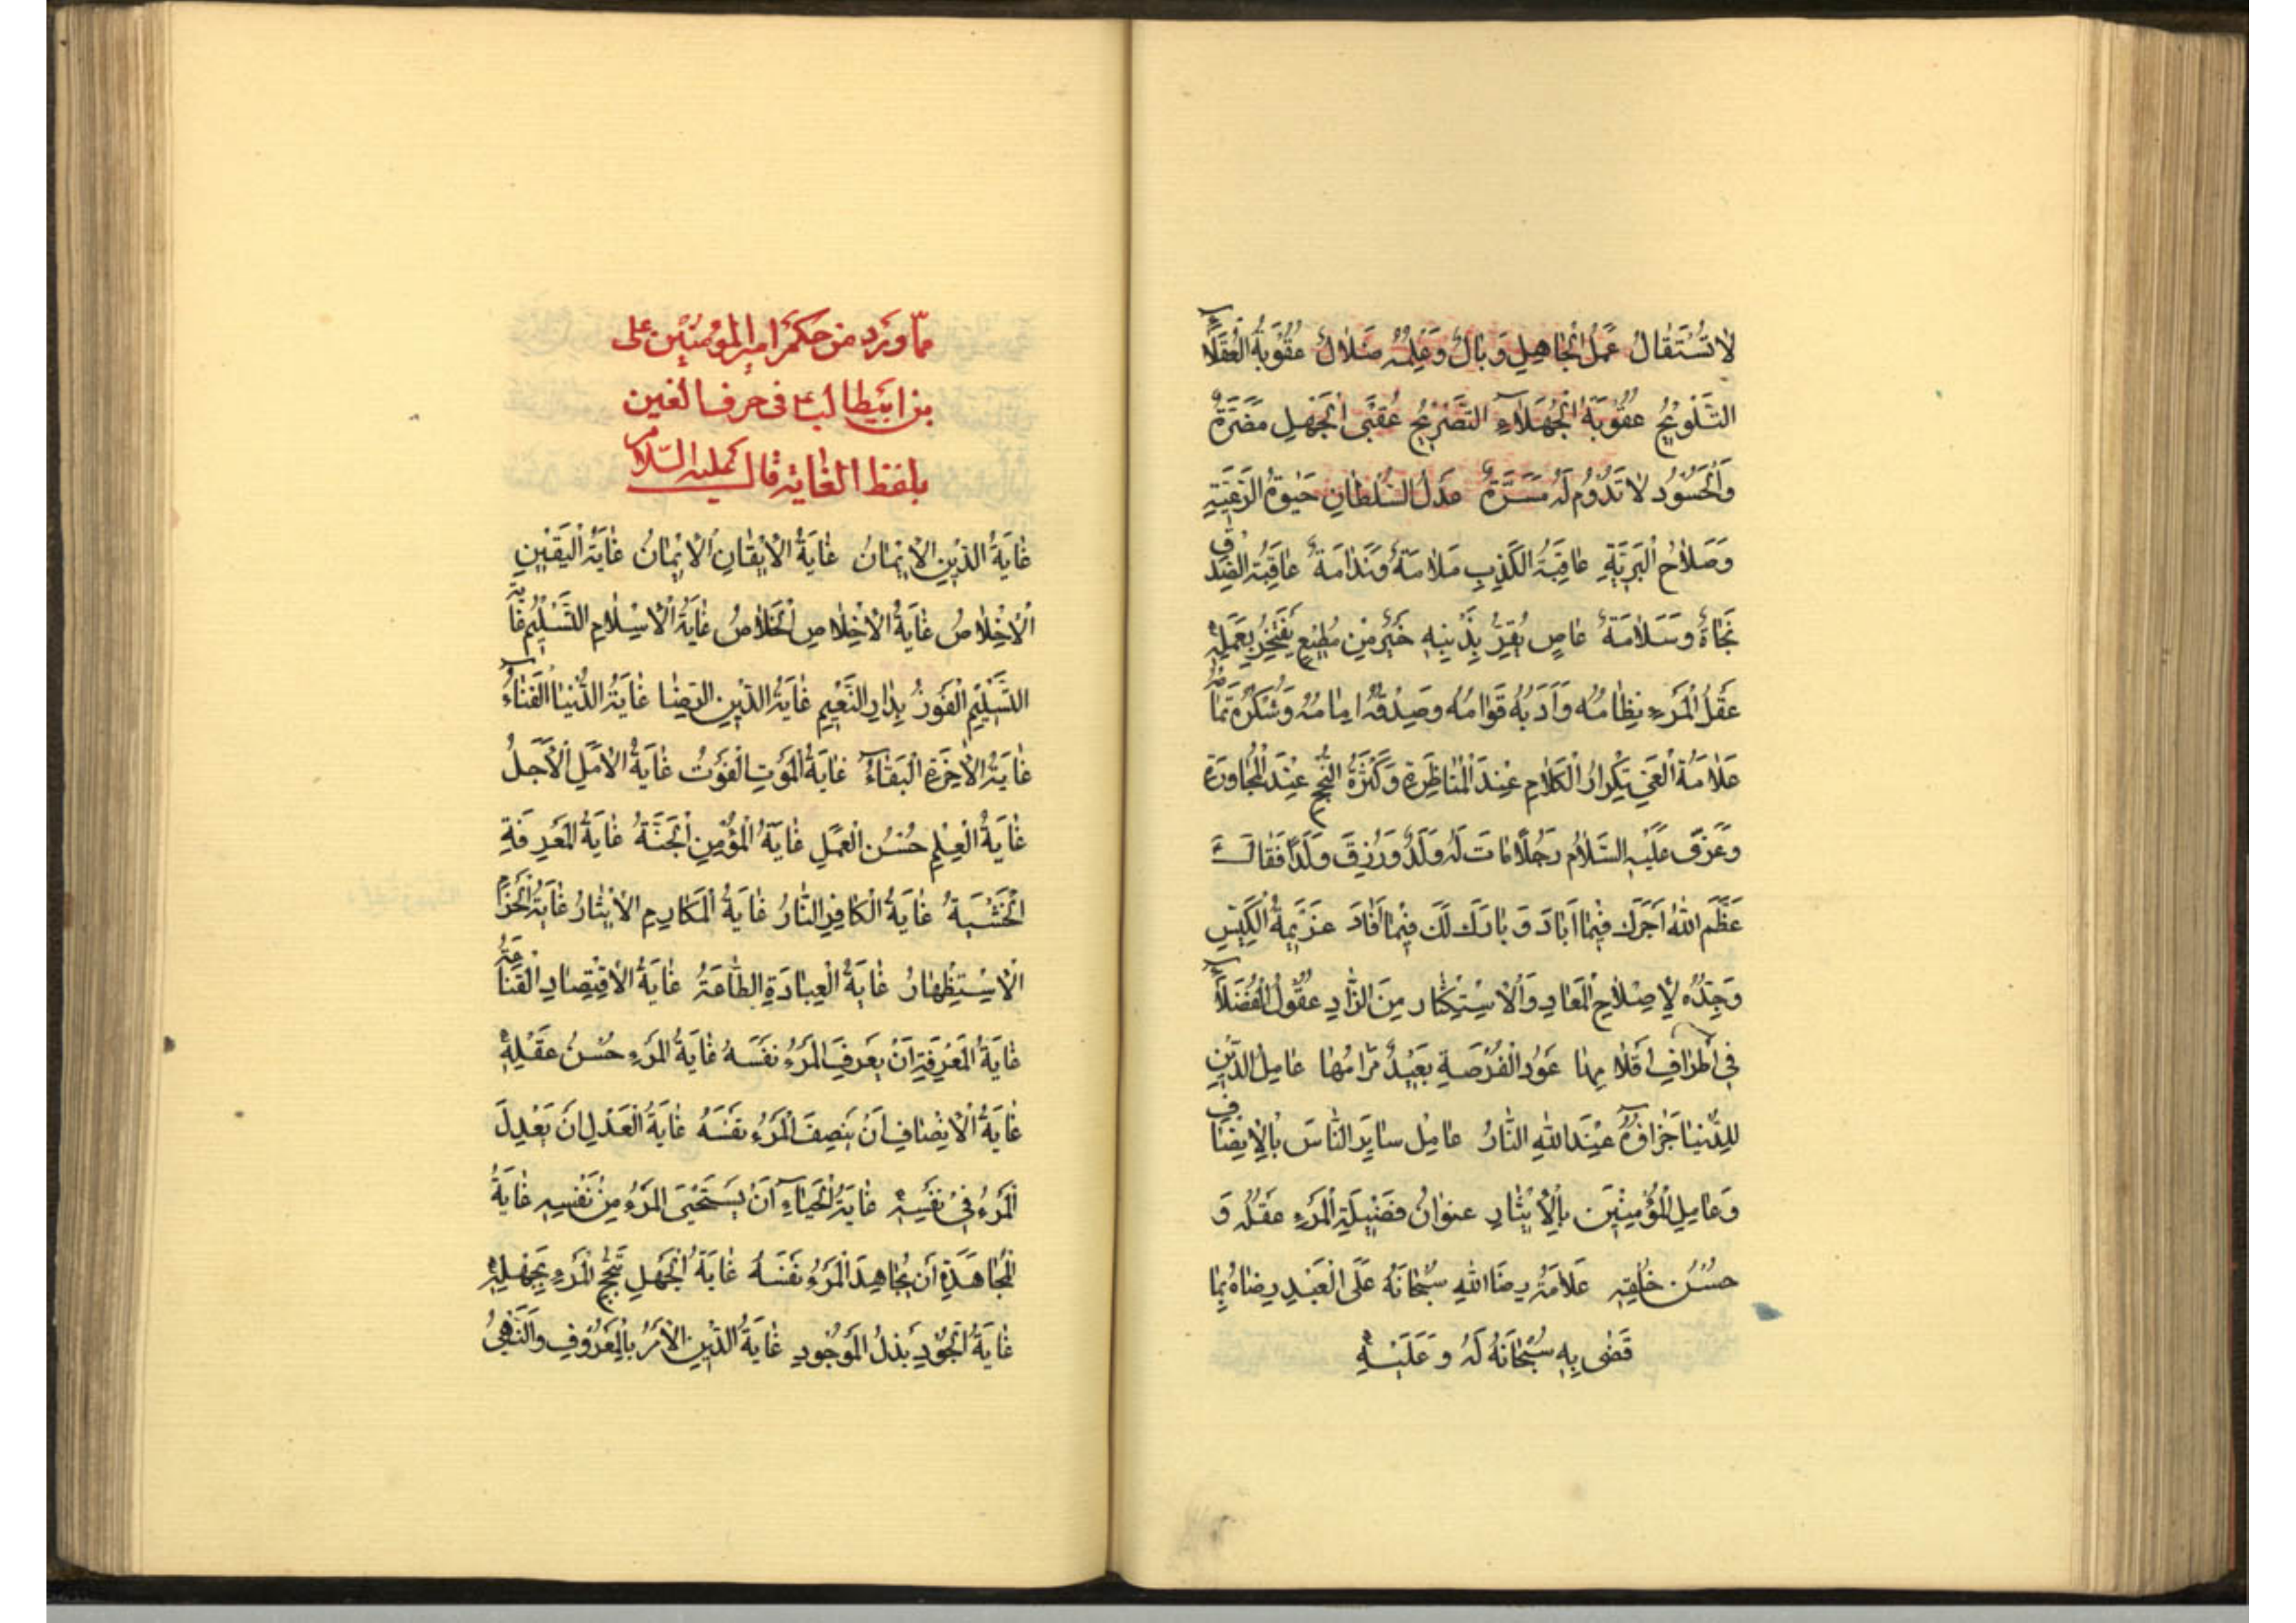 لَا تُسْتَقَالُ عَمَلُ الْجَاهِلِ وَبَالٌ وَعِلْمُهُ ضَلَالٌ عُقُوبَةُ الْعُقَلَاءِ
التَّلْوِيحُ عُقُوبَةُ الْجُهَلَاءِ التَّصْرِيحُ عُقْبَى الْجَهْلِ مَضَرَّةٌ
وَالْحَسُودُ لَا تَدُومُ لَهُ مَسَرَّةٌ عَدْلُ السُّلْطَانِ حَيٰوةُ الرَّعِيَّةِ
وَصَلَاحُ الْبَرِيَّةِ عَاقِبَةُ الْكَذِبِ مَلَامَةٌ وَنَدَامَةٌ عَاقِبَةُ الصِّدْقِ
نَجَاةٌ وَسَلَامَةٌ عَاصٍ يُقِرُّ بِذَنْبِهِ خَيْرٌ مِنْ مُطِيعٍ يَفْتَخِرُ بِعَمَلِهِ
عَقْلُ الْمَرْءِ نِظَامُهُ وَأَدَبُهُ قَوَامُهُ وَصِدْقُهُ اِمَامُهُ وَشُكْرُهُ تَمَامُهُ
عَلَامَةُ الْعَيِّ تِكْرَارُ الْكَلَامِ عِنْدَ الْمُنَاظَرَةِ وَكَثْرَةُ التَّبَجُّحِ عِنْدَ الْمُحَاوَرَةِ
وَعَزَّى عَلَيْهِ السَّلَامُ رَجُلًا مَاتَ لَهُ وَلَدٌ وَرُزِقَ وَلَدًا فَقَالَ
عَظَّمَ اللهُ اَجْرَكَ فِيمَا اَبَادَ وَ بَارَكَ لَكَ فِيمَا اَفَادَ عَزِيمَةُ الْكَيِّسِ
وَجِدُّهُ لِإِصْلَاحِ الْمَعَادِ وَالْاِسْتِكْثَارِ مِنَ الزَّادِ عُقُولُ الْفُضَلَاءِ
فِي اَطْرَافِ اَقْلَامِهَا عَوْدُ الْفُرْصَةِ بَعِيدٌ مَرَامُهَا عَامِلُ الدِّينِ
لِلدُّنْيَا جَزَاؤُهُ عِنْدَ اللهِ النَّارُ عَامِلْ سَايِرَ النَّاسِ بِالْاِنْصَافِ
وَعَامِلِ الْمُؤْمِنِينَ بِالْاِيثَارِ عُنْوَانُ فَضِيلَةِ الْمَرْءِ عَقْلُهُ وَ
حُسْنُ خُلْقِهِ عَلَامَةُ رِضَا اللهِ سُبْحَانَهُ عَلَى الْعَبْدِ رِضَاهُ بِمَا
قَضٰى بِهِ سُبْحَانَهُ لَهُ وَ عَلَيْهِ
مما ورد من حكم امير المؤمنين على
بن ابيطالب ع فى حرف الغين
بلفظ الغاية قال عليه السلام
غَايَةُ الدِّينِ الْاِيمَانُ غَايَةُ الْاِيقَانِ الْاِيمَانُ غَايَةُ الْيَقِينِ
الْاِخْلَاصُ غَايَةُ الْاِخْلَاصِ الْخَلَاصُ غَايَةُ الْاِسْلَامِ التَّسْلِيمُ غَايَةُ
التَّسْلِيمِ الْفَوْزُ بِدَارِ النَّعِيمِ غَايَةُ الدِّينِ الرِّضَا غَايَةُ الدُّنْيَا الْفَنَاءُ
غَايَةُ الْاٰخِرَةِ الْبَقَاءُ غَايَةُ الْمَوْتِ الْفَوْتُ غَايَةُ الْاَمَلِ الْاَجَلُ
غَايَةُ الْعِلْمِ حُسْنُ الْعَمَلِ غَايَةُ الْمُؤْمِنِ الْجَنَّةُ غَايَةُ الْمَعْرِفَةِ
الْخَشْيَةُ غَايَةُ الْكَافِرِ النَّارُ غَايَةُ الْمَكَارِمِ الْاِيثَارُ غَايَةُ الْحَزْمِ
الْاِسْتِظْهَارُ غَايَةُ الْعِبَادَةِ الطَّاعَةُ غَايَةُ الْاِقْتِصَادِ الْقَنَاعَةُ
غَايَةُ الْمَعْرِفَةِ اَنْ يَعْرِفَ الْمَرْءُ نَفْسَهُ غَايَةُ الْمَرْءِ حُسْنُ عَقْلِهِ
غَايَةُ الْاِنْصَافِ اَنْ يُنْصِفَ الْمَرْءُ نَفْسَهُ غَايَةُ الْعَدْلِ اَنْ يَعْدِلَ
الْمَرْءُ فِي نَفْسِهِ غَايَةُ الْحَيَاءِ اَنْ يَسْتَحْيِيَ الْمَرْءُ مِنْ نَفْسِهِ غَايَةُ
الْمُجَاهَدَةِ اَنْ يُجَاهِدَ الْمَرْءُ نَفْسَهُ غَايَةُ الْجَهْلِ تَبَجُّحُ الْمَرْءِ بِجَهْلِهِ
غَايَةُ الْجُودِ بَذْلُ الْمَوْجُودِ غَايَةُ الدِّينِ الْاَمْرُ بِالْمَعْرُوفِ وَالنَّهْيُ